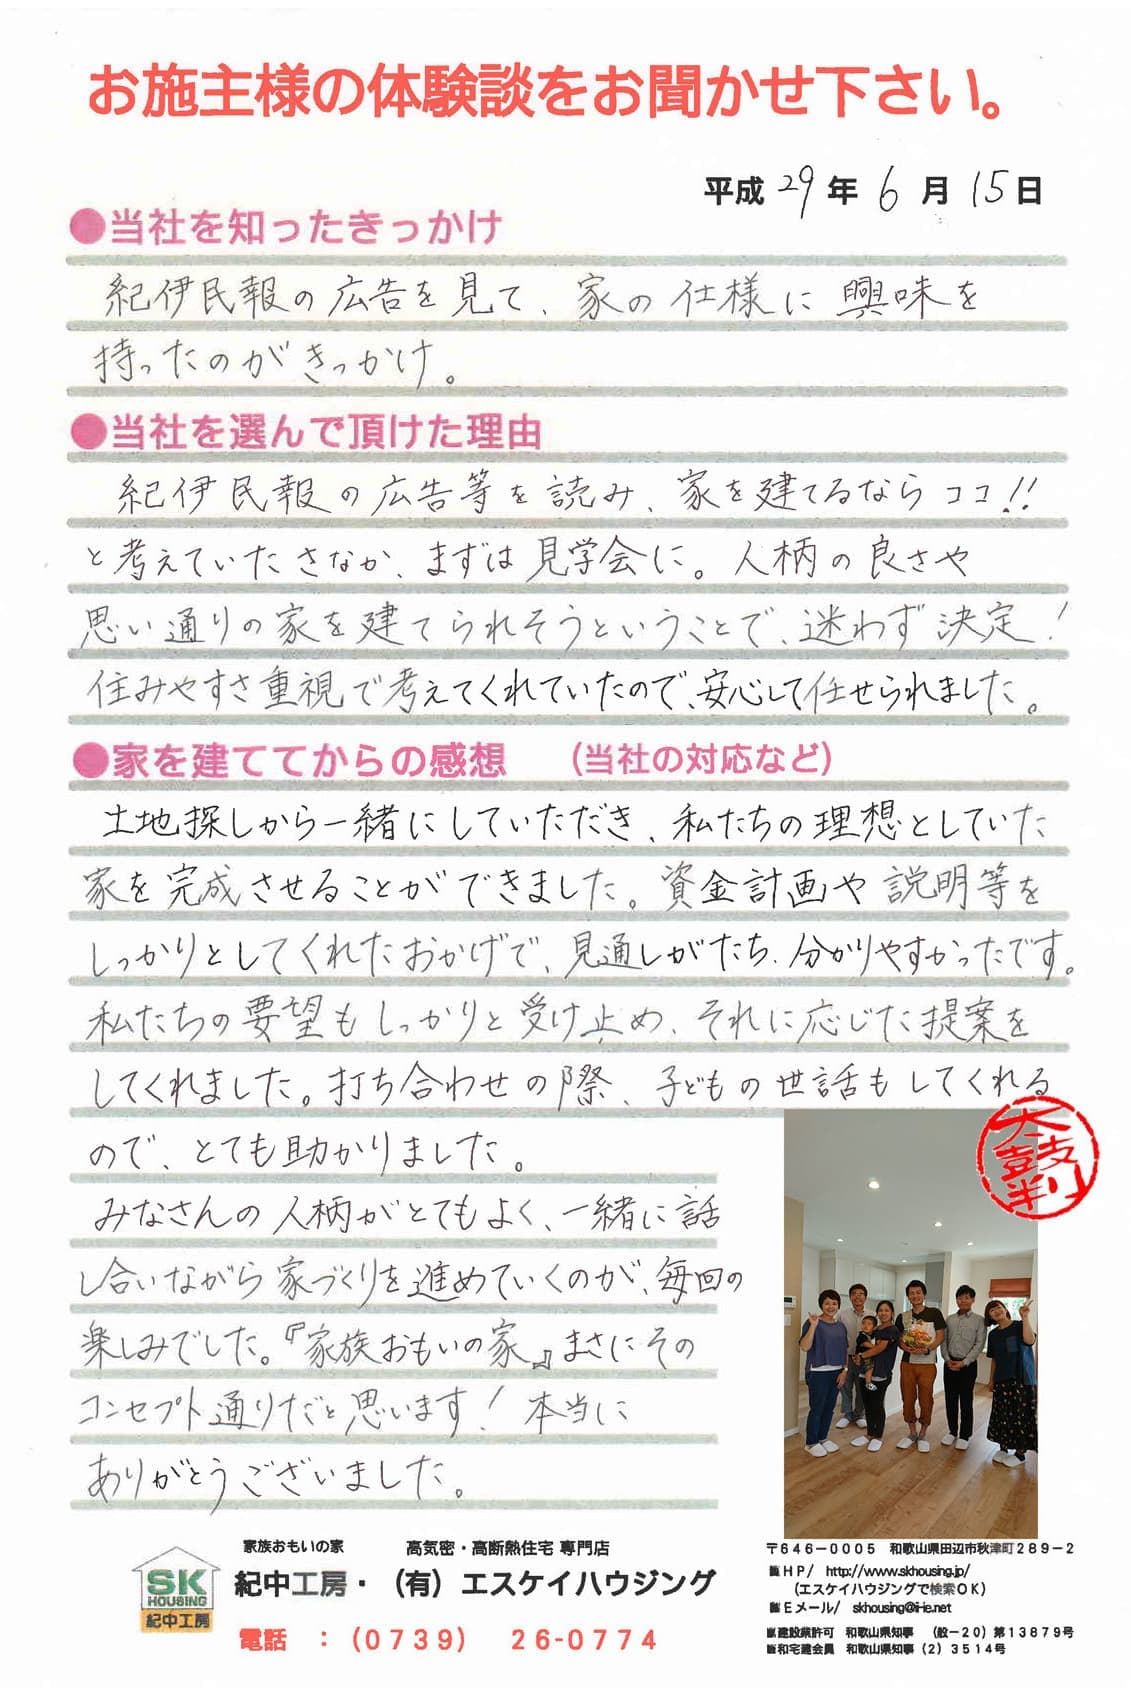 お施主様の体験談をお聞かせ下さい。
平成 29 年 6 月 15 日
●当社を知ったきっかけ
紀伊民報の広告を見て、家の仕様に興味を
持ったのがきっかけ。
●当社を選んで頂けた理由
紀伊民報の広告等を読み、家を建てるならココ!!
と考えていたさなか、まずは見学会に。人柄の良さや
思い通りの家を建てられそうということで、迷わず決定!
住みやすさ重視で考えてくれていたので、安心して任せられました。
●家を建ててからの感想 (当社の対応など)
土地探しから一緒にしていただき、私たちの理想としていた
家を完成させることができました。資金計画や説明等を
しっかりとしてくれたおかげで、見通しがたち、分かりやすかったです。
私たちの要望もしっかりと受け止め、それに応じた提案を
してくれました。打ち合わせの際、子どもの世話もしてくれる
ので、とても助かりました。
みなさんの人柄がとてもよく、一緒に話
し合いながら家づくりを進めていくのが、毎回の
楽しみでした。『家族おもいの家』まさにその
コンセプト通りだと思います!本当に
ありがとうございました。
太鼓判
家族おもいの家 高気密・高断熱住宅 専門店
SK HOUSING 紀中工房
紀中工房・(有)エスケイハウジング
電話 :(0739) 26-0774
〒646-0005 和歌山県田辺市秋津町289-2
■HP/ http://www.skhousing.jp/
(エスケイハウジングで検索OK)
■Eメール/ skhousing@i-ie.net
■建設業許可 和歌山県知事 (般-20)第13879号
■和宅建会員 和歌山県知事(2)3514号